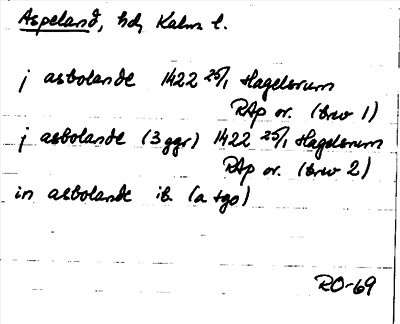 Aspeland, hd, Kalm l.
j asbolande 1422 25/1 Hagelsrum
RAp or. (brev 1)
j asbolande (3 ggr) 1422 25/1 Hagelsrum
RAp or. (brev 2)
in asbolande ib. (a tgo)
RO-69